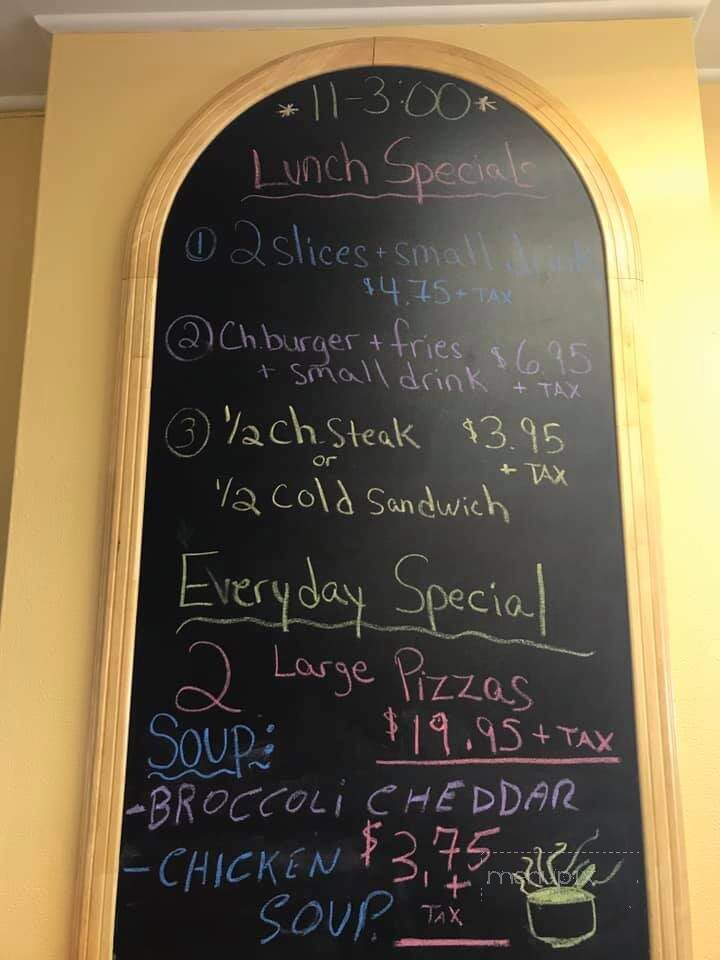 * 11-3:00 *
Lunch Specials
① 2 slices + small drink
$4.75 + TAX
② Ch.burger + fries $6.95
+ small drink + TAX
③ 1/2 Ch. Steak $3.95
or + TAX
1/2 Cold Sandwich
Everyday Special
2 Large Pizzas
SOUP: $19.95 + TAX
- BROCCOLi CHEDDAR
- CHICKEN $3.75
SOUP +
TAX
menupix